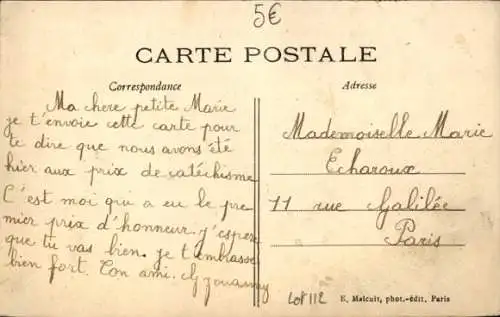 5€
CARTE POSTALE
Correspondance
Ma chere petite Marie
je t'envoie cette carte pour
te dire que nous avons été
hier aux prix de catéchisme
C'est moi qui a eu le pre
mier prix d'honneur. j'espere
que tu vas bien. je t'embrasse
bien fort. Ton ami.
Adresse
Mademoiselle Marie
Echaroux
11 rue Galilée
Paris
Lot 112
E. Malcuit, phot.-édit. Paris